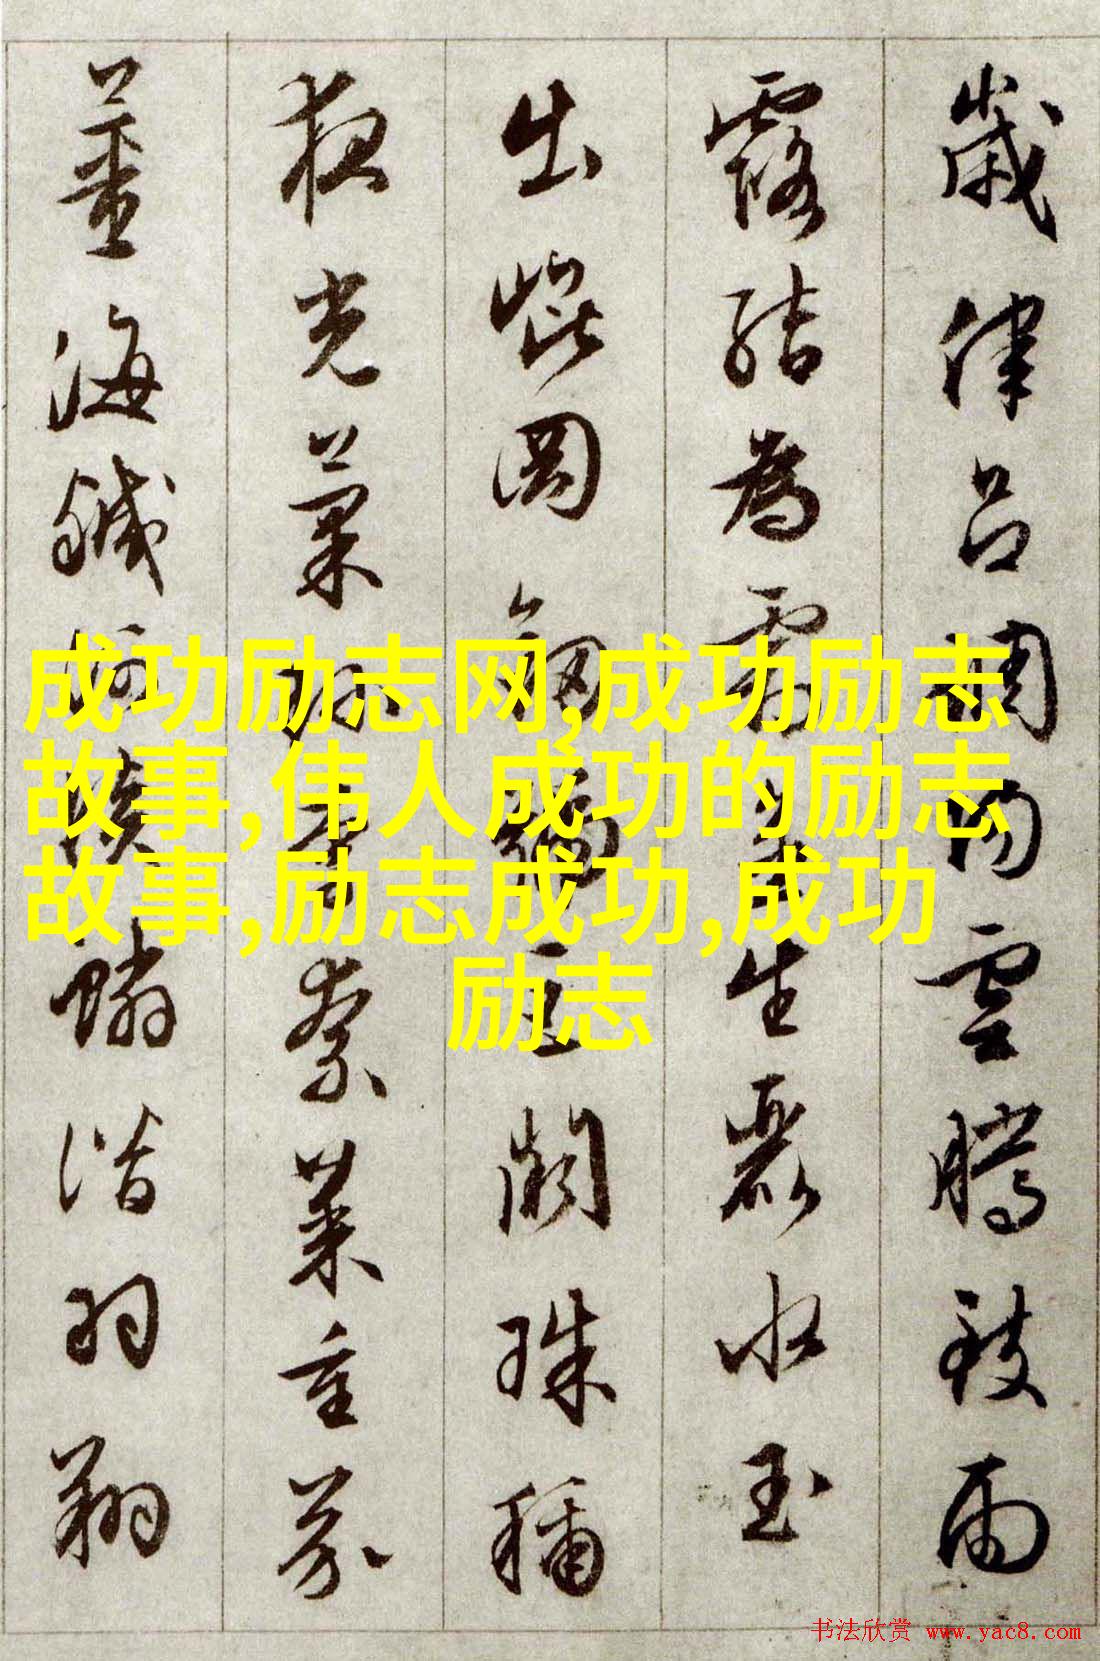 歲律呂調陽雲騰致雨
露結為霜金生麗水玉
出崐岡劍號巨闕珠稱
夜光菓珎李柰菜重芥
薑海鹹河淡鱗潛羽翔
成功励志网,成功励志
故事,伟人成功的励志
故事,励志成功,成功
励志
书法欣赏 www.yac8.com